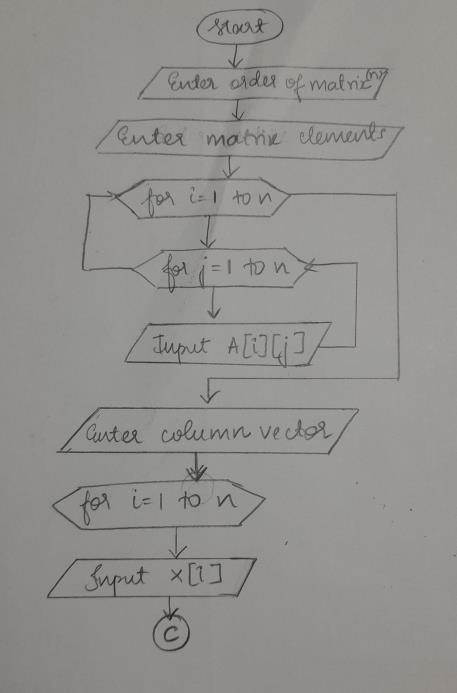 Start
Enter order of matrix (n)
Enter matrix elements
for i=1 to n
for j=1 to n
Input A[i][j]
Enter column vector
for i=1 to n
Input x[i]
C